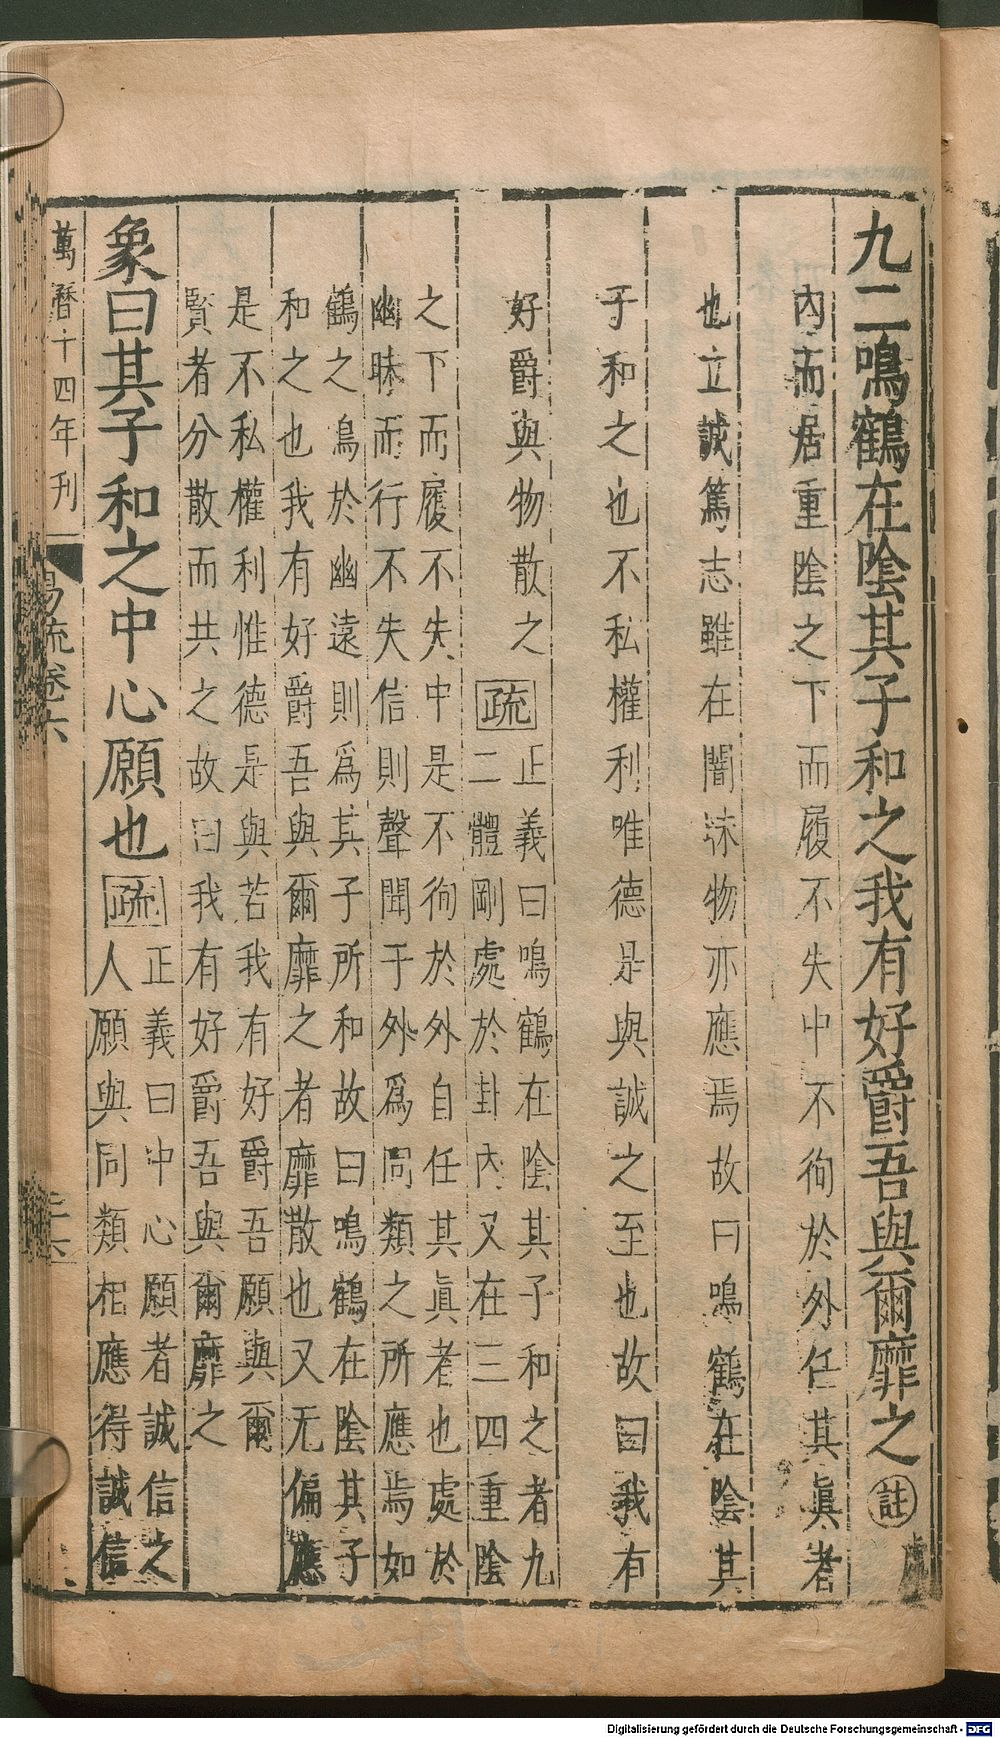 九二鳴鶴在陰其子和之我有好爵吾與爾靡之註處
內而居重陰之下而履不失中不徇於外任其眞者
也立誠篤志雖在闇昧物亦應焉故曰鳴鶴在陰其
子和之也不私權利唯德是與誠之至也故曰我有
好爵與物散之疏
正義曰鳴鶴在陰其子和之者九
二體剛處於卦內又在三四重陰
之下而履不失中是不徇於外自任其眞者也處於
幽昧而行不失信則聲聞于外爲同類之所應焉如
鶴之鳥於幽遠則爲其子所和故曰鳴鶴在陰其子
和之也我有好爵吾與爾靡之者靡散也又无偏應
是不私權利惟德是與若我有好爵吾願與爾
賢者分散而共之故曰我有好爵吾與爾靡之
象曰其子和之中心願也疏
正義曰中心願者誠信之
人願與同類相應得誠信
萬曆十四年刊
易疏卷六
Digitalisierung gefördert durch die Deutsche Forschungsgemeinschaft - DFG